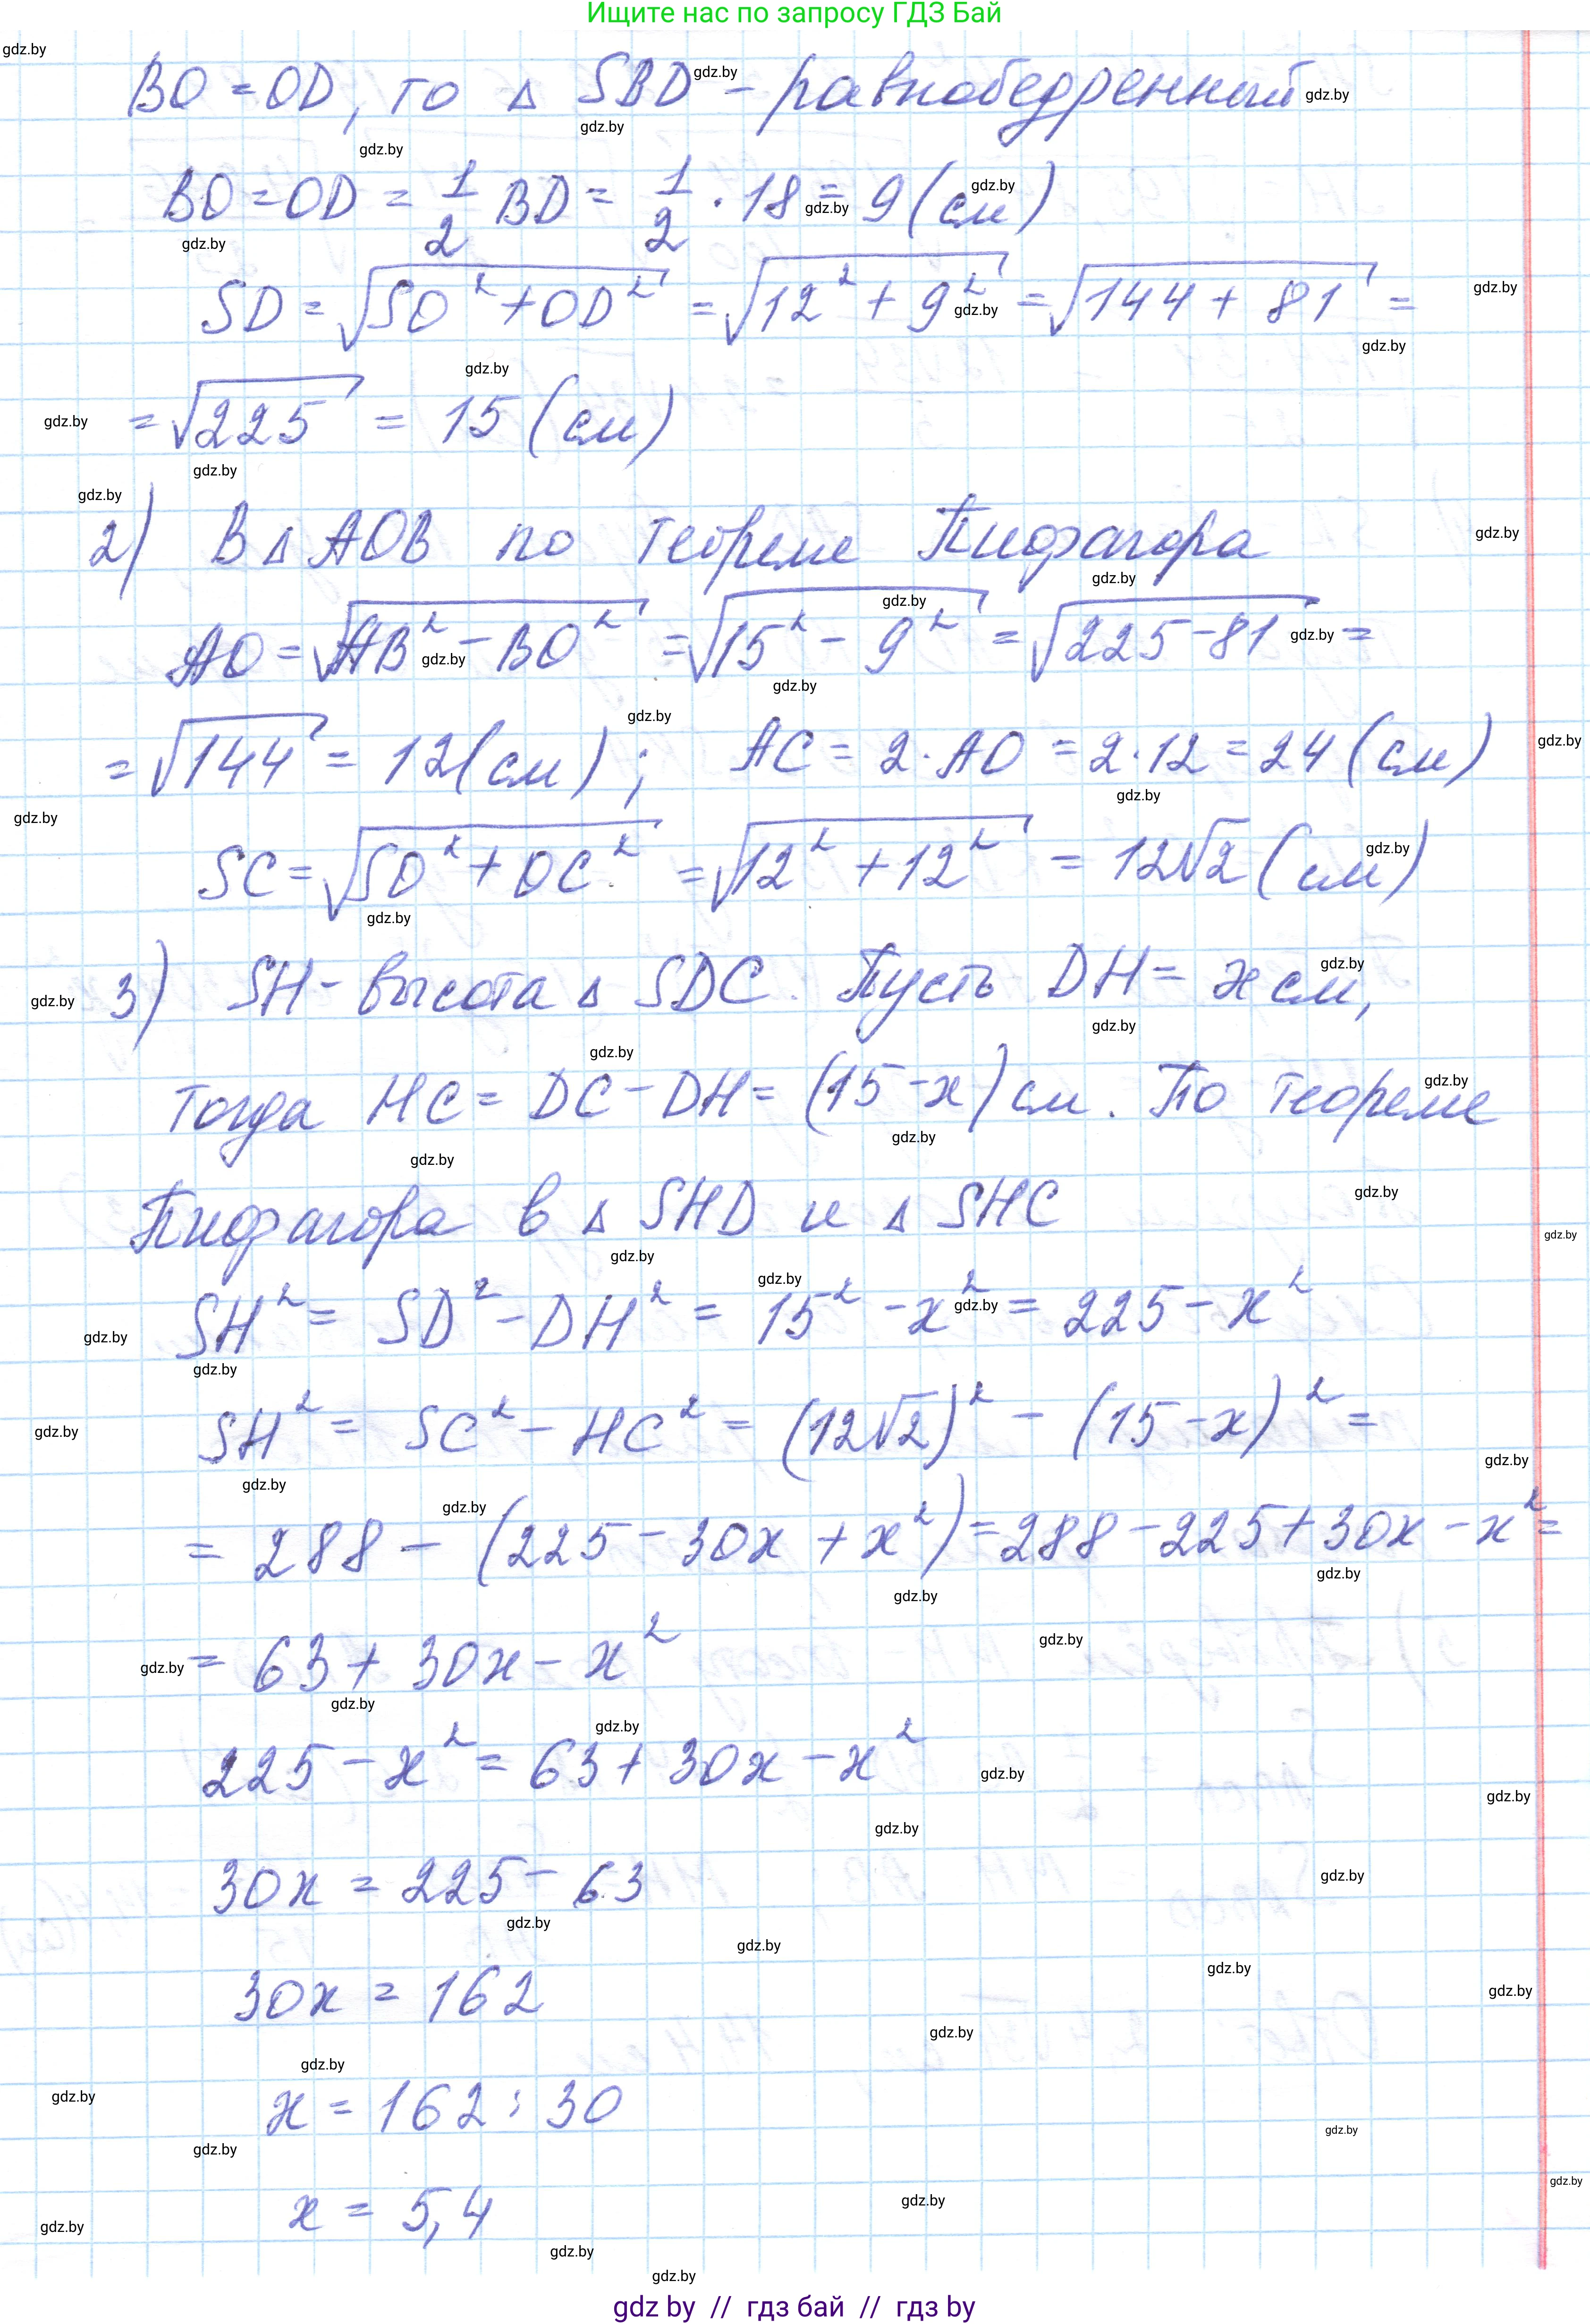 Ищите нас по запросу ГДЗ Бай
BO = OD, то Δ SBD - равнобедренный
BO = OD = 1/2 BD = 1/2 · 18 = 9 (см)
SD = √(SO² + OD²) = √(12² + 9²) = √(144 + 81) =
= √225 = 15 (см)
2) В Δ AOB по теореме Пифагора
AO = √(AB² - BO²) = √(15² - 9²) = √(225 - 81) =
= √144 = 12 (см) ; AC = 2 · AO = 2 · 12 = 24 (см)
SC = √(SO² + OC²) = √(12² + 12²) = 12√2 (см)
3) SH - высота Δ SDC. Пусть DH = x см,
тогда HC = DC - DH = (15 - x) см. По теореме
Пифагора в Δ SHD и Δ SHC
SH² = SD² - DH² = 15² - x² = 225 - x²
SH² = SC² - HC² = (12√2)² - (15 - x)² =
= 288 - (225 - 30x + x²) = 288 - 225 + 30x - x² =
= 63 + 30x - x²
225 - x² = 63 + 30x - x²
30x = 225 - 63
30x = 162
x = 162 : 30
x = 5,4
gdz by // гдз бай // гдз by